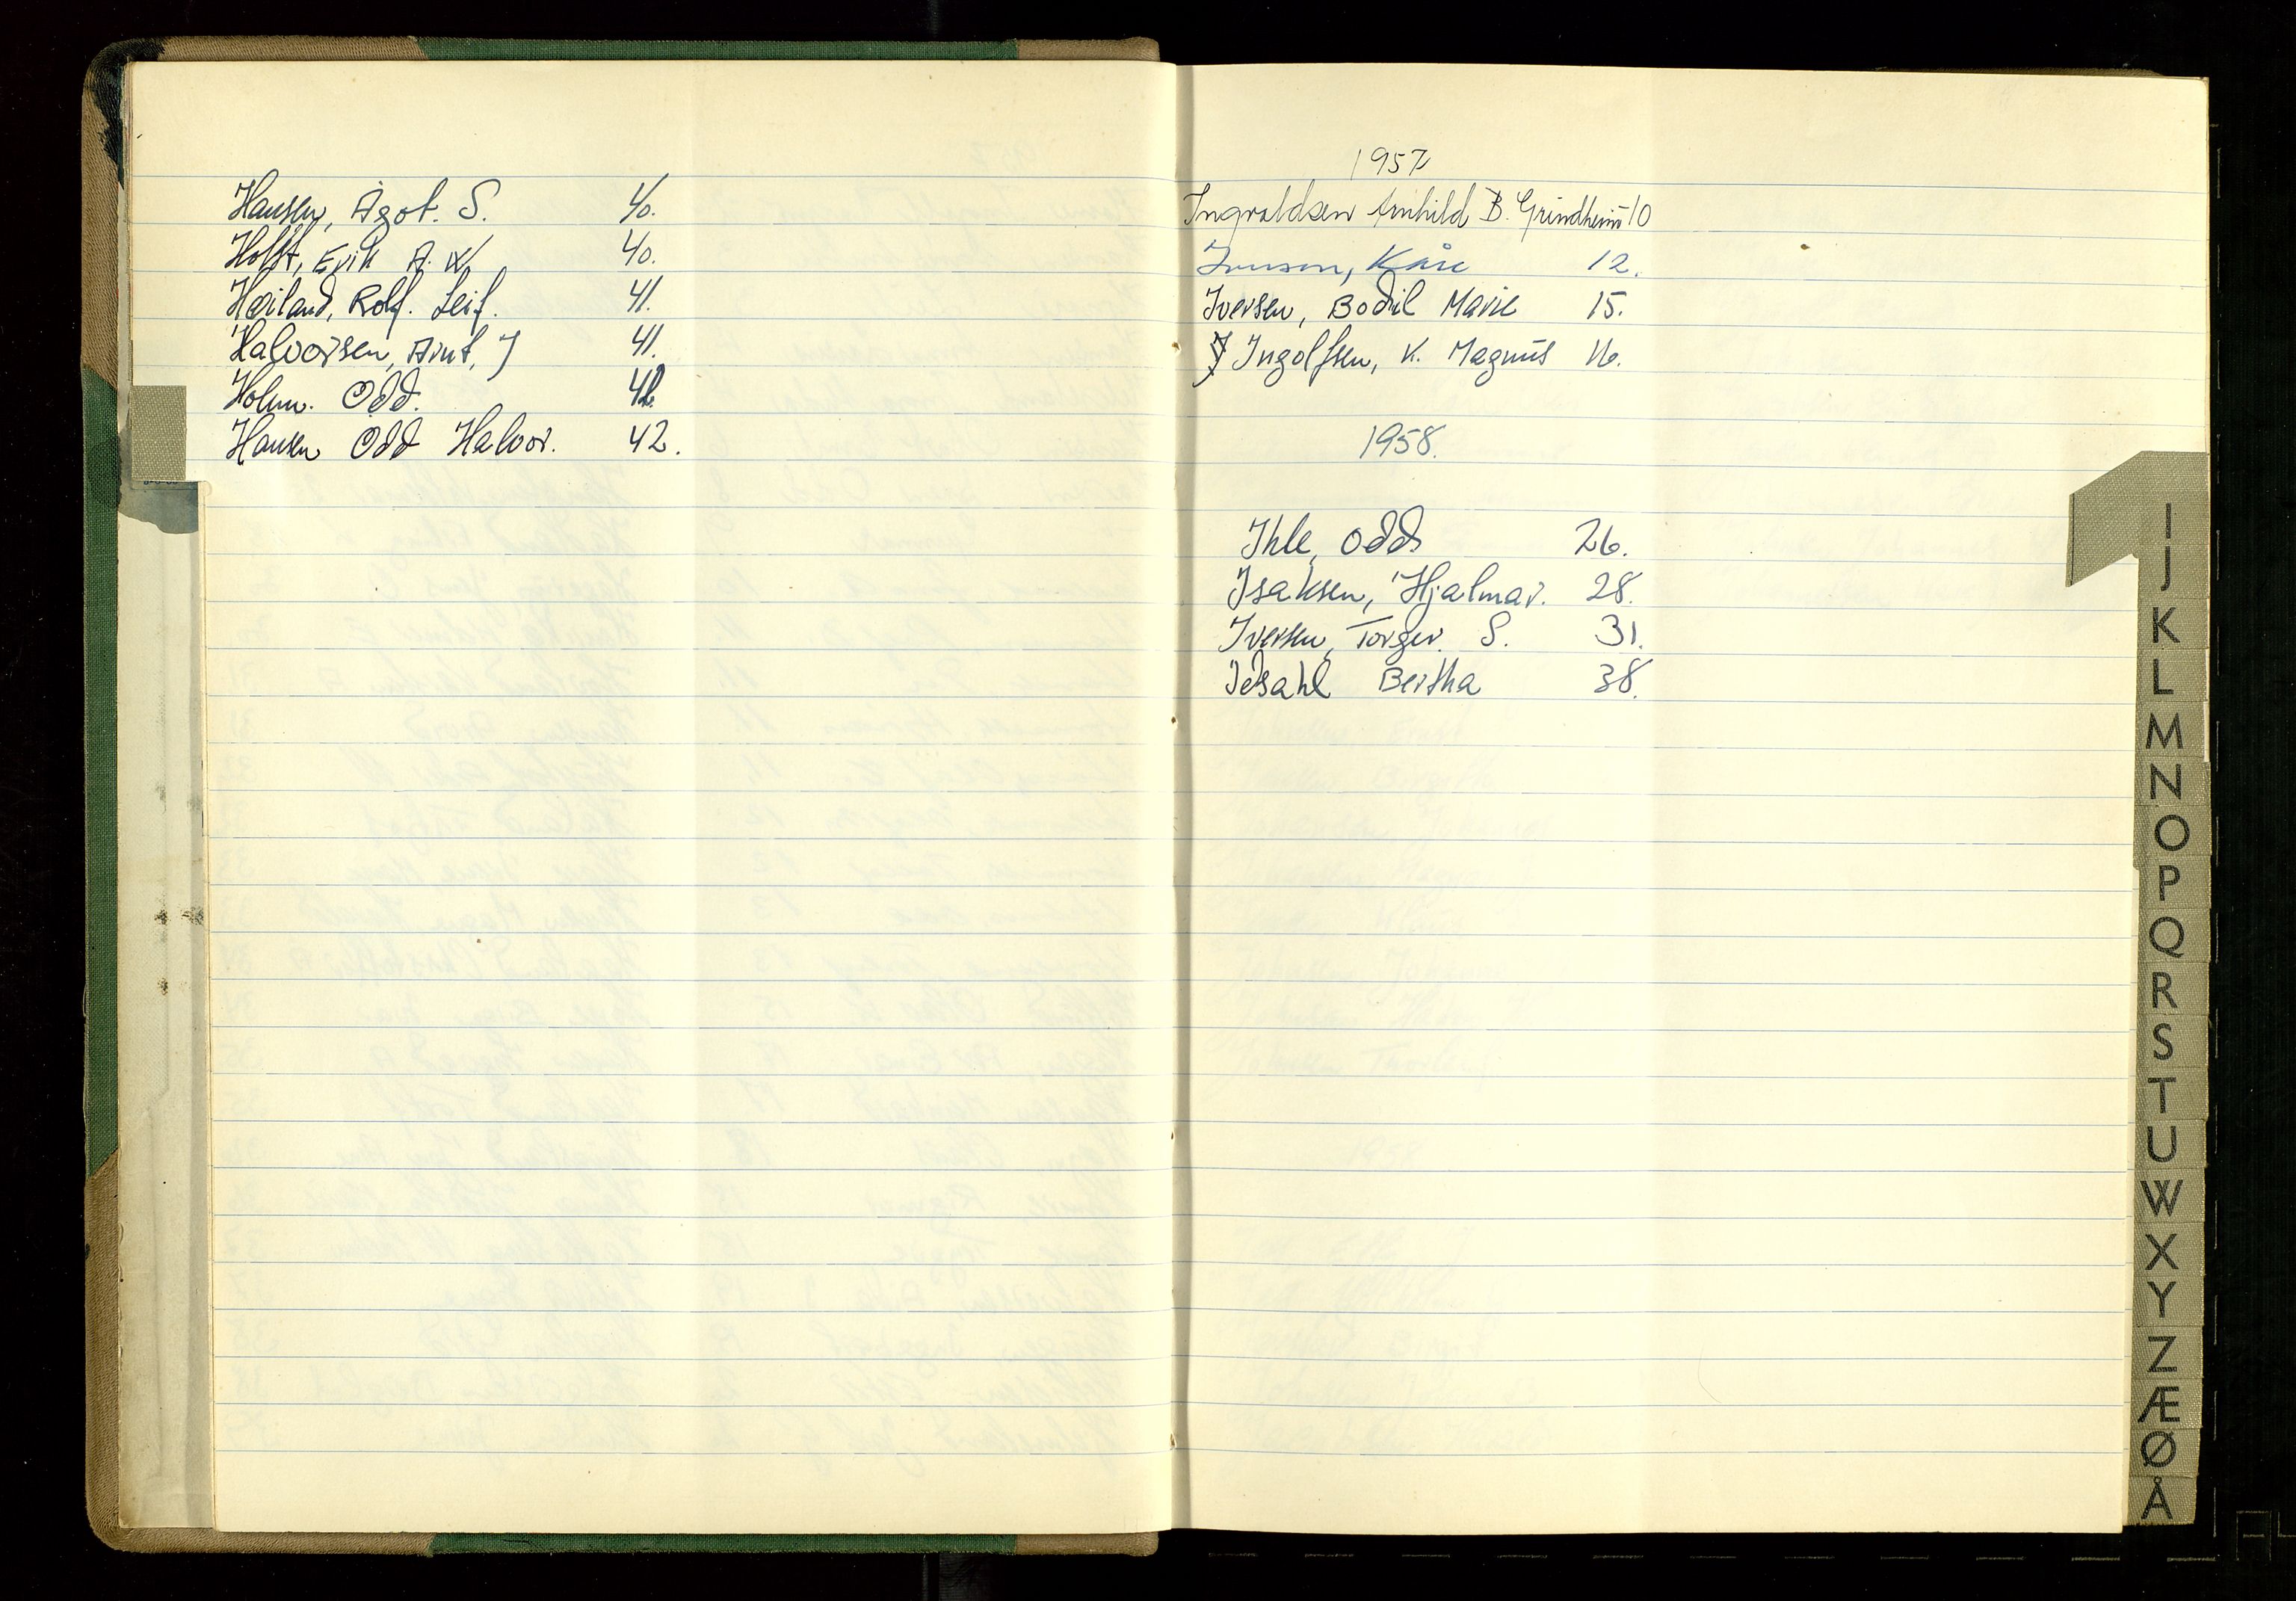 Hansen, Ågot. S. 40.
Holst, Erik A. W 40.
Høiland, Rolf. Leif. 41.
Halvorsen, Arnt, J 41.
Holm. Odd. 42.
Hansen Odd Halvor. 42.
1957
Ingvaldsen Arnhild B. Grindheim 10
Iversen, Kåre 12.
Iversen, Bodil Marie 15.
Ingolfsen, K. Magnus 16.
1958.
Ihle, Odd 26.
Isaksen, Hjalmar. 28.
Iversen, Torger. S. 31.
Idsahl Bertha 38.
I
J
K
L
M
N
O
P
Q
R
S
T
U
W
X
Y
Z
Æ
Ø
Å